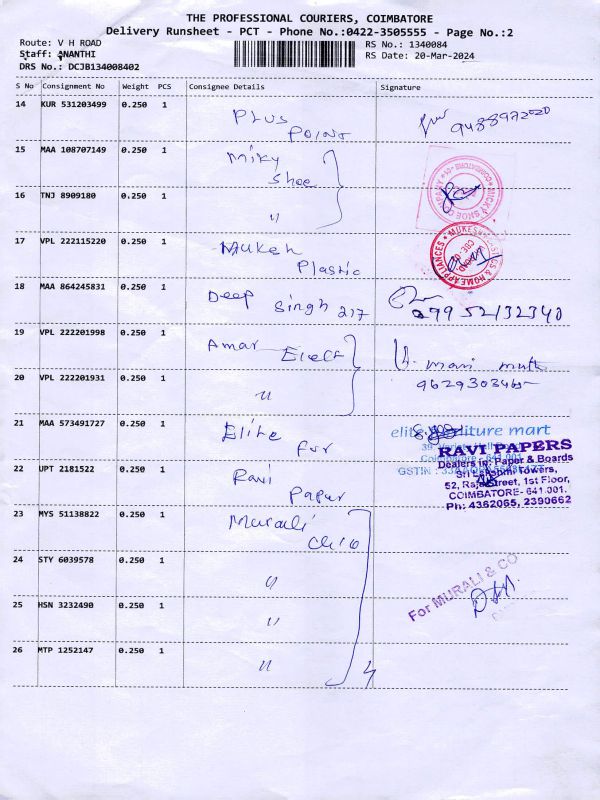 THE PROFESSIONAL COURIERS, COIMBATORE
Delivery Runsheet - PCT - Phone No.:0422-3505555 - Page No.:2
Route: V H ROAD
Staff: ANANTHI
DRS No.: DCJB134008402
RS No.: 1340084
RS Date: 20-Mar-2024
S No Consignment No Weight PCS Consignee Details Signature
14 KUR 531203499 0.250 1 Plus Point 9488972020
15 MAA 108707149 0.250 1 Miky Shoe
16 TNJ 8909180 0.250 1 "
17 VPL 222115220 0.250 1 Mukesh Plastic
18 MAA 864245831 0.250 1 Deep Singh 217
19 VPL 222201998 0.250 1 Amar Elect
20 VPL 222201931 0.250 1 "
21 MAA 573491727 0.250 1 Elite Fur
22 UPT 2181522 0.250 1 Ravi Papur
elite furniture mart
RAVI PAPERS
Dealers in: Paper & Boards
Sri Lakshmi Towers,
52, Raja Street, 1st Floor,
COIMBATORE- 641 001.
Ph: 4362065, 2390662
23 MYS 51138822 0.250 1 Murali
24 STY 6039578 0.250 1 "
25 HSN 3232490 0.250 1 "
For MURALI & CO
26 MTP 1252147 0.250 1 "
4